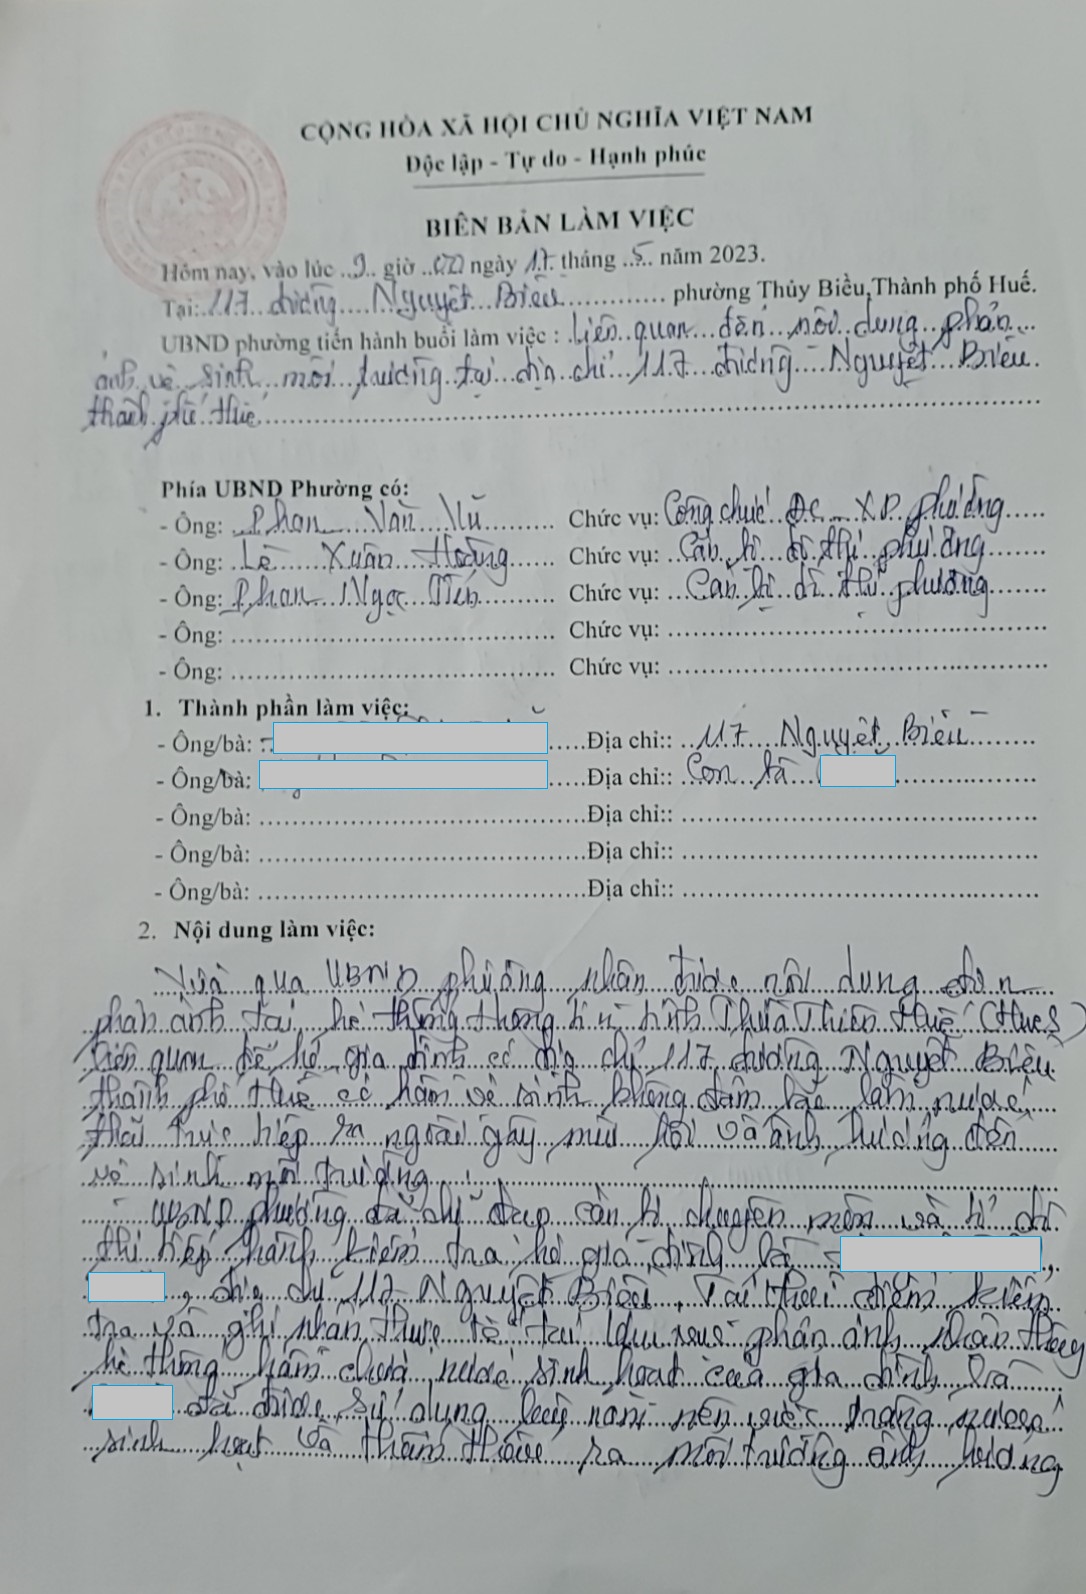 CỘNG HÒA XÃ HỘI CHỦ NGHĨA VIỆT NAM
Độc lập - Tự do - Hạnh phúc
BIÊN BẢN LÀM VIỆC
Hôm nay, vào lúc ..9.. giờ ..00 ngày 17. tháng ..5.. năm 2023.
Tại: 117 đường Nguyệt Biều ............ phường Thủy Biều,Thành phố Huế.
UBND phường tiến hành buổi làm việc : Liên quan đến nội dung phản
ánh vệ sinh môi trường tại địa chỉ 117 đường Nguyệt Biều
thành phố Huế
Phía UBND Phường có:
- Ông: Phan Văn Vũ Chức vụ: Công chức ĐC - XD phường
- Ông: Lê Xuân Hoàng Chức vụ: Cán bộ đô thị phường
- Ông: Phan Ngọc Chức vụ: Cán bộ đô thị phường
- Ông: Chức vụ:
- Ông: Chức vụ:
1. Thành phần làm việc:
- Ông/bà: Địa chỉ:: 117 Nguyệt Biều
- Ông/bà: Địa chỉ:: Con bà
- Ông/bà: Địa chỉ::
- Ông/bà: Địa chỉ::
- Ông/bà: Địa chỉ::
2. Nội dung làm việc:
Vừa qua UBND phường nhận được nội dung đơn
phản ánh tại hệ thống thông tin tỉnh Thừa Thiên Huế (HueS)
liên quan đến hộ gia đình có địa chỉ 117 đường Nguyệt Biều
thành phố Huế có hầm vệ sinh không đảm bảo làm nước
thải trực tiếp ra ngoài gây mùi hôi và ảnh hưởng đến
vệ sinh môi trường.
UBND phường đã chỉ đạo cán bộ chuyên môn và tổ đô
thị tiến hành kiểm tra hộ gia đình bà
, địa chỉ 117 Nguyệt Biều, Tại thời điểm kiểm
tra và ghi nhận thực tế tại khu vực phản ánh, nhận thấy
hệ thống hầm chứa nước sinh hoạt của gia đình bà
đã được sử dụng lâu năm nên nước
sinh hoạt và thẩm thấu ra môi trường ảnh hưởng